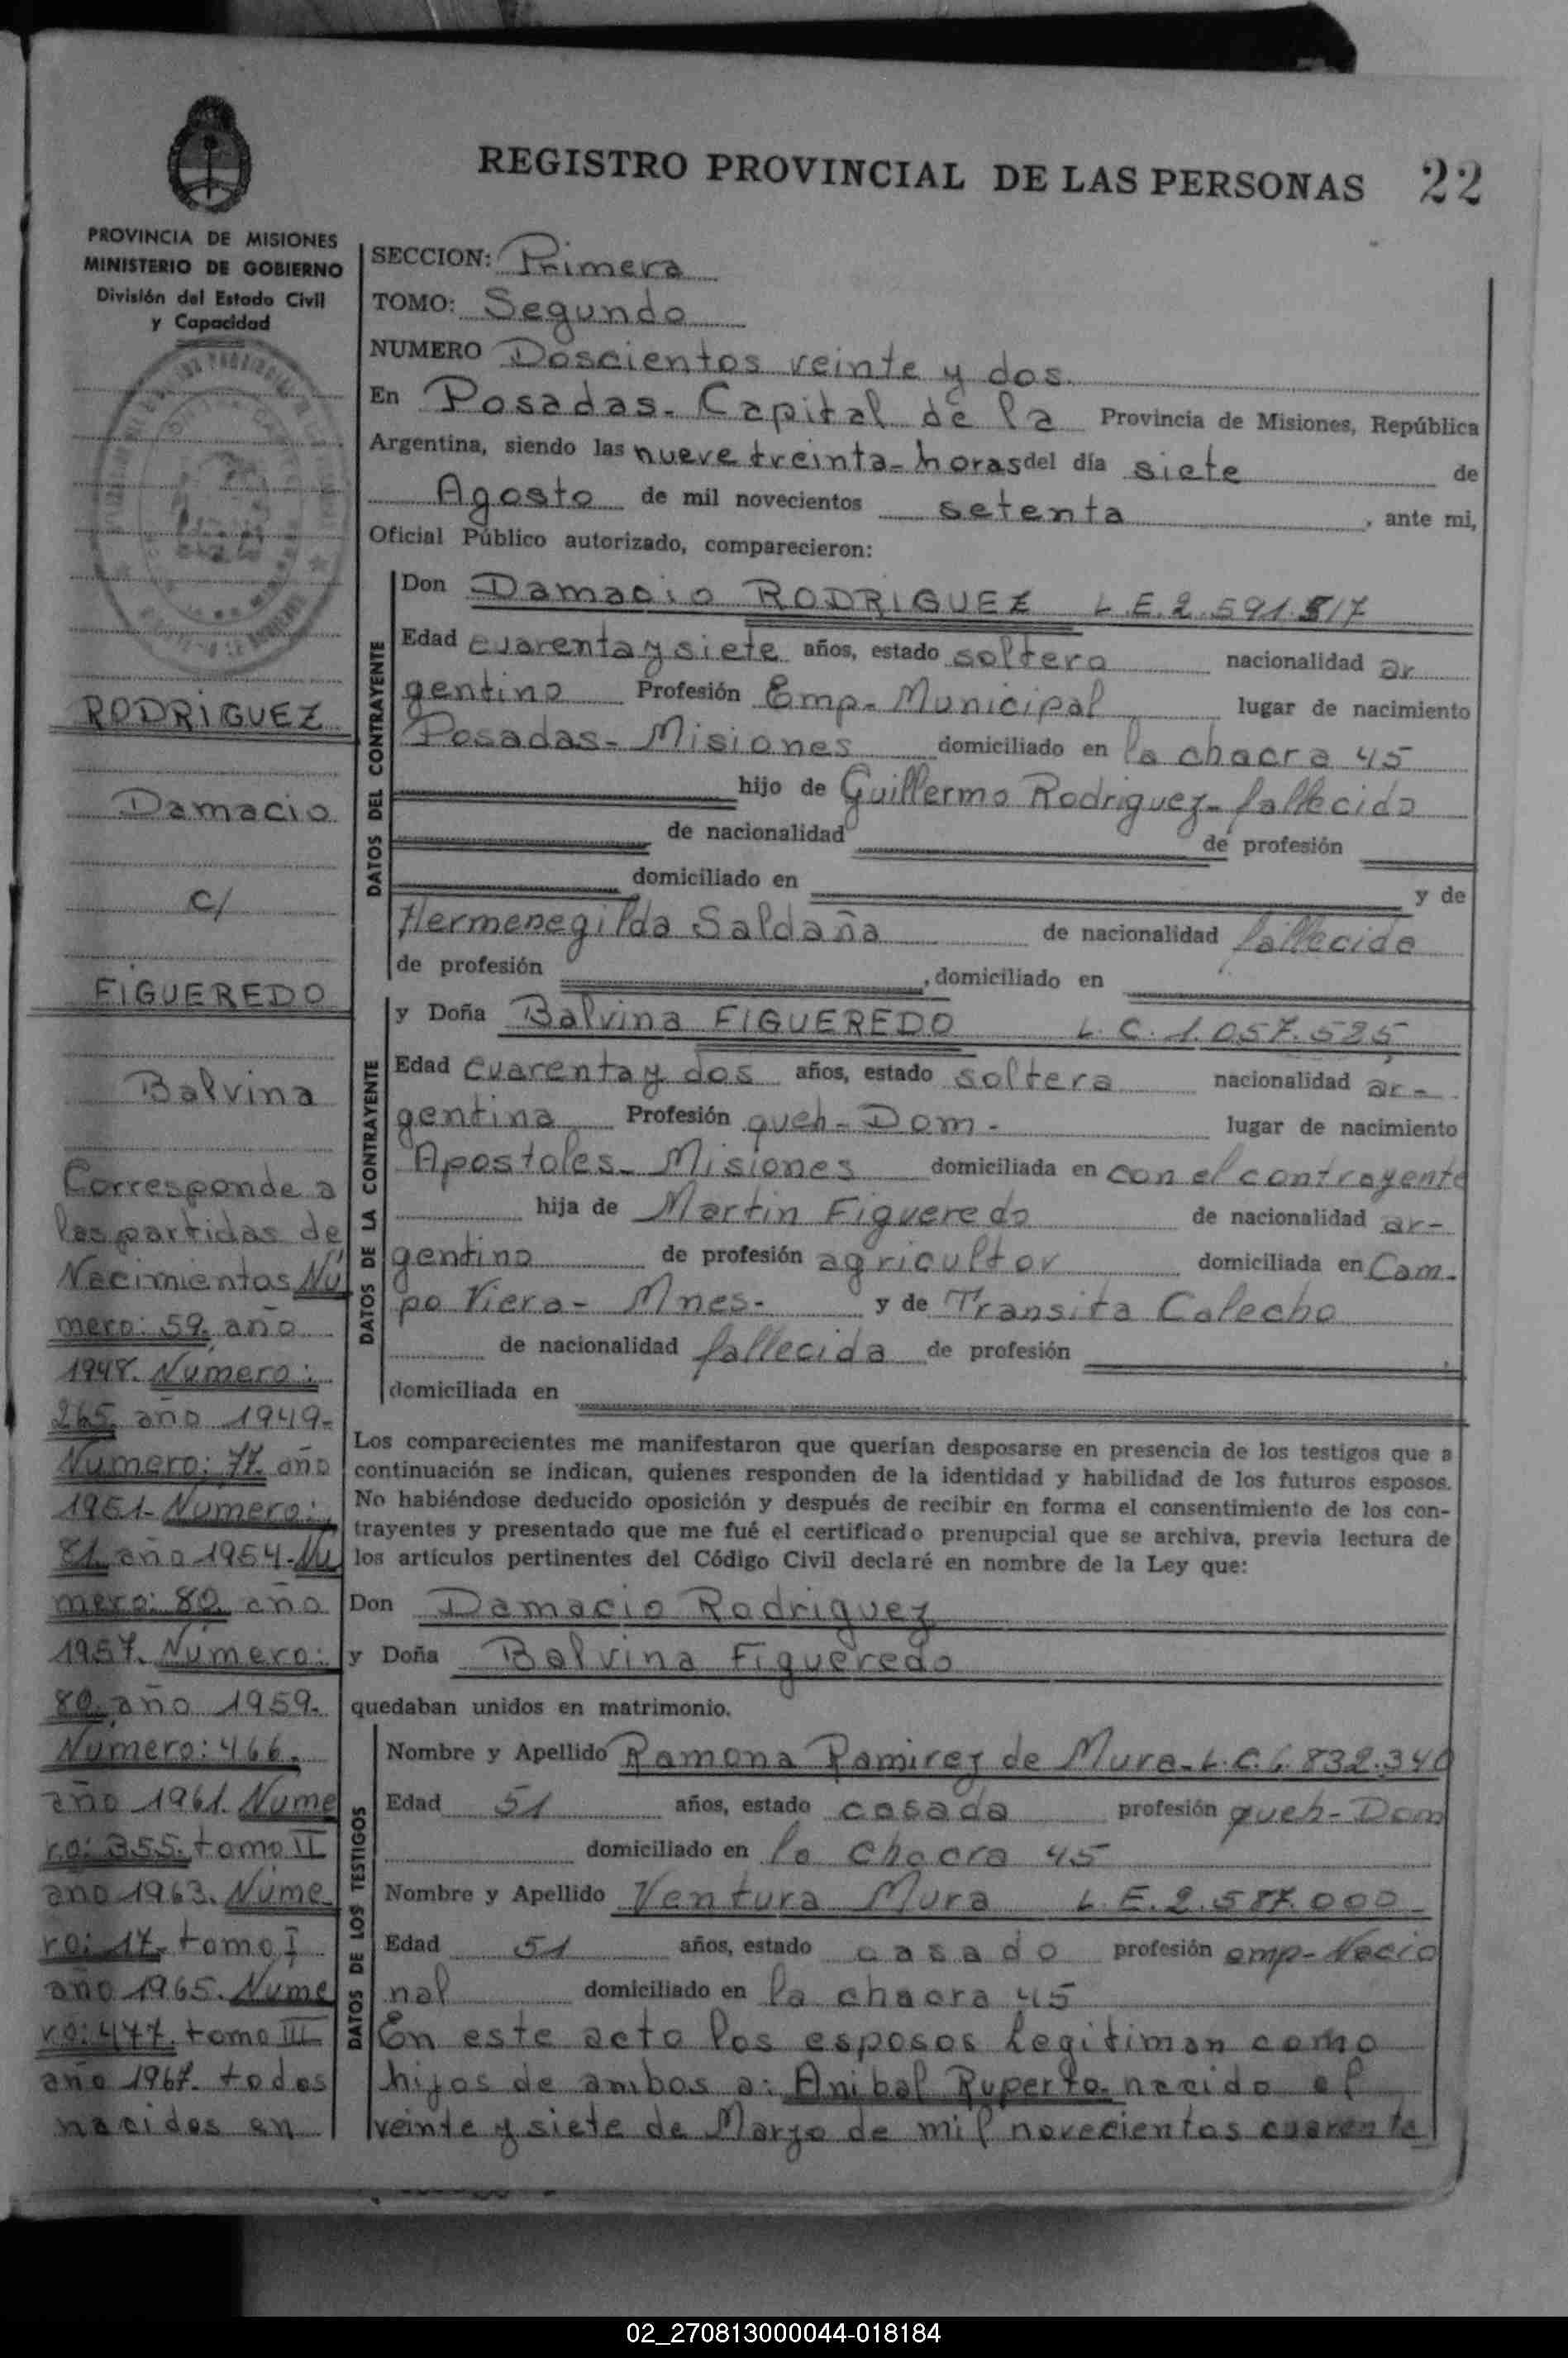 REGISTRO PROVINCIAL DE LAS PERSONAS 22
PROVINCIA DE MISIONES
MINISTERIO DE GOBIERNO
División del Estado Civil
y Capacidad
RODRIGUEZ
Damacio
c/
FIGUEREDO
Balvina
Corresponde a
las partidas de
Nacimientos Nú
mero: 59. año
1948. Numero:
265. año 1949-
Numero: 77. año
1951- Numero:
81. año 1954- Nu
mero: 80. año
1957. Número:
80. año 1959.
Número: 466.
año 1961. Nume
ro: 355. tomo II
año 1963. Núme
ro: 17. tomo I
año 1965. Nume
ro: 477. tomo III
año 1967. todos
nacidos en
SECCION: Primera
TOMO: Segundo
NUMERO Doscientos veinte y dos.
En Posadas- Capital de la Provincia de Misiones, República
Argentina, siendo las nueve treinta- horas del día siete de
Agosto de mil novecientos setenta, ante mi,
Oficial Público autorizado, comparecieron:
DATOS DEL CONTRAYENTE
Don Damacio RODRIGUEZ L.E. 2.591.517
Edad cuarenta y siete años, estado soltero nacionalidad ar
gentino Profesión Emp- Municipal lugar de nacimiento
Posadas- Misiones domiciliado en la chacra 45
hijo de Guillermo Rodriguez- fallecido
de nacionalidad de profesión
domiciliado en y de
Hermenegilda Saldaña de nacionalidad fallecida
de profesión , domiciliado en
DATOS DE LA CONTRAYENTE
y Doña Balvina FIGUEREDO L.C. 1.057.525
Edad cuarenta y dos años, estado soltera nacionalidad ar-
gentina Profesión queh- Dom- lugar de nacimiento
Apostoles- Misiones domiciliada en con el contrayente
hija de Martin Figueredo de nacionalidad ar-
gentino de profesión agricultor domiciliada en Cam-
po Viera- Mnes- y de Transita Calecho
de nacionalidad fallecida de profesión
domiciliada en
Los comparecientes me manifestaron que querían desposarse en presencia de los testigos que a
continuación se indican, quienes responden de la identidad y habilidad de los futuros esposos.
No habiéndose deducido oposición y después de recibir en forma el consentimiento de los con-
trayentes y presentado que me fué el certificado prenupcial que se archiva, previa lectura de
los artículos pertinentes del Código Civil declaré en nombre de la Ley que:
Don Damacio Rodriguez
y Doña Balvina Figueredo
quedaban unidos en matrimonio.
DATOS DE LOS TESTIGOS
Nombre y Apellido Ramona Ramirez de Mura- L.C. 6.832.340
Edad 51 años, estado casada profesión queh- Dom
domiciliado en la chacra 45
Nombre y Apellido Ventura Mura L.E. 2.587.000
Edad 51 años, estado casado profesión emp- Nacio
nal domiciliado en la chacra 45
En este acto los esposos legitiman como
hijos de ambos a: Anibal Ruperto- nacido el
veinte y siete de Marzo de mil novecientos cuarenta
02_270813000044-018184